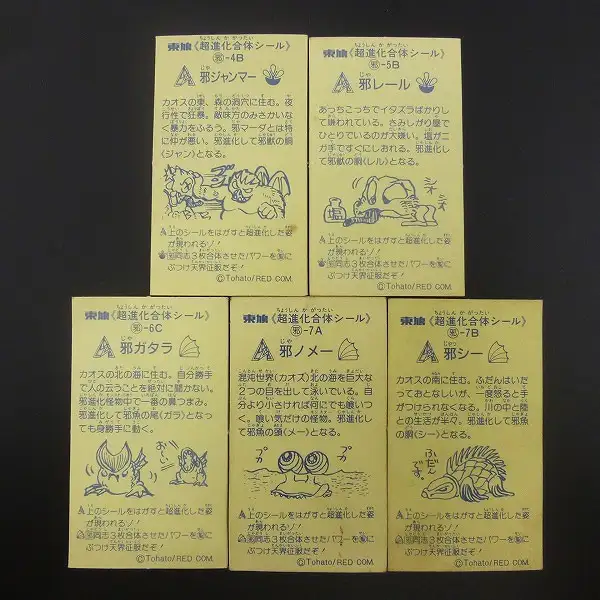 東鳩《超進化合体シール》
邪-4B
邪ジャンマー
カオスの東、森の洞穴に住む。夜
行性で狂暴。敵味方のみさかいな
く暴力をふるう。邪マーダとは特
に仲が悪い。邪進化して邪獣の胴
(ジャン)となる。
上のシールをはがすと超進化した姿
が現われるゾ!
同志3枚合体させたパワーを
ぶつけ天界征服だぞ!
©Tohato/RED COM.
東鳩《超進化合体シール》
邪-5B
邪レール
あっちこっちでイタズラばかりし
て嫌われている。さみしがり屋で
ひとりでいるのが大嫌い。塩がニ
ガ手ですぐにしおれる。邪進化し
て邪獣の胴(レル)となる。
シオ
シオ
塩
上のシールをはがすと超進化した姿
が現われるゾ!
同志3枚合体させたパワーを
ぶつけ天界征服だぞ!
©Tohato/RED COM.
東鳩《超進化合体シール》
邪-6C
邪ガタラ
カオスの北の海に住む。自分勝手
で人の云うことを絶対に聞かない。
邪進化怪物中で一番の鼻つまみ。
邪進化して邪魚の尾(ガタ)となっ
ても身勝手に動く。
上のシールをはがすと超進化した姿
が現われるゾ!
同志3枚合体させたパワーを
ぶつけ天界征服だぞ!
©Tohato/RED COM.
東鳩《超進化合体シール》
邪-7A
邪ノメー
混沌世界(カオズ)北の海を巨大な
2つの目を出して泳いでいる。自
分より小さければ何にでも喰いつ
く。喰い気だけの怪物。邪進化し
て邪魚の頭(メー)となる。
プカ
プカ
上のシールをはがすと超進化した姿
が現われるゾ!
同志3枚合体させたパワーを
ぶつけ天界征服だぞ!
©Tohato/RED COM.
東鳩《超進化合体シール》
邪-7B
邪シー
カオスの南に住む。ふだんはいだ
っておとなしいが、一度怒ると手
がつけられなくなる。川の中と陸
との生活が半々。邪進化して邪魚
の胴(シー)となる。
ふだん
です。
上のシールをはがすと超進化した姿
が現われるゾ!
同志3枚合体させたパワーを
ぶつけ天界征服だぞ!
©Tohato/RED COM.